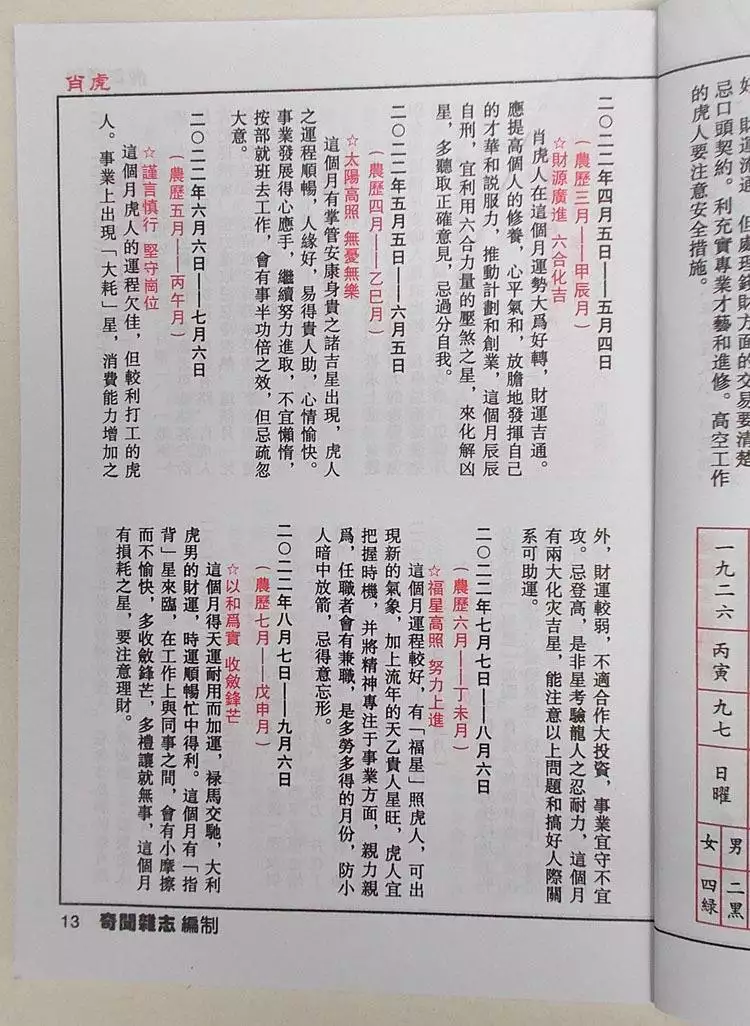 好，財運流通，但處理錢財方面的交易要清楚
忌口頭契約。利充實專業才藝和進修。高空工作
的虎人要注意安全措施。
一九二六
丙寅
九七
日曜
男
二黑
女
四緑
肖虎
二〇二二年四月五日——五月四日
(農歷三月——甲辰月)
☆財源廣進 六合化吉
肖虎人在這個月運勢大爲好轉，財運吉通。
應提高個人的修養，心平氣和，放膽地發揮自己
的才華和說服力，推動計劃和創業，這個月辰辰
自刑，宜利用六合力量的壓煞之星，來化解凶
星，多聽取正確意見，忌過分自我。
二〇二二年五月五日——六月五日
(農歷四月——乙巳月)
☆太陽高照 無憂無樂
這個月有掌管安康身貴之諸吉星出現，虎人
之運程順暢，人緣好，易得貴人助，心情愉快。
事業發展得心應手，繼續努力進取，不宜懶惰，
按部就班去工作，會有事半功倍之效，但忌疏忽
大意。
二〇二二年六月六日——七月六日
(農歷五月——丙午月)
☆謹言慎行 堅守崗位
這個月虎人的運程欠佳，但較利打工的虎
人。事業上出現「大耗」星，消費能力增加之
外，財運較弱，不適合作大投資，事業宜守不宜
攻。忌登高，是非星考驗龍人之忍耐力，這個月
有兩大化灾吉星，能注意以上問題和搞好人際關
系可助運。
二〇二二年七月七日——八月六日
(農歷六月——丁未月)
☆福星高照 努力上進
這個月運程較好，有「福星」照虎人，可出
現新的氣象，加上流年的天乙貴人星旺，虎人宜
把握時機，并將精神專注于事業方面，親力親
爲，任職者會有兼職，是多勞多得的月份，防小
人暗中放箭，忌得意忘形。
二〇二二年八月七日——九月六日
(農歷七月——戊申月)
☆以和爲實 收斂鋒芒
這個月得天運耐用而加運，禄馬交馳，大利
虎男的財運，時運順暢忙中得利。這個月有「指
背」星來臨，在工作上與同事之間，會有小摩擦
而不愉快，多收斂鋒芒，多禮讓就無事，這個月
有損耗之星，要注意理財。
13 奇聞雜志 編制